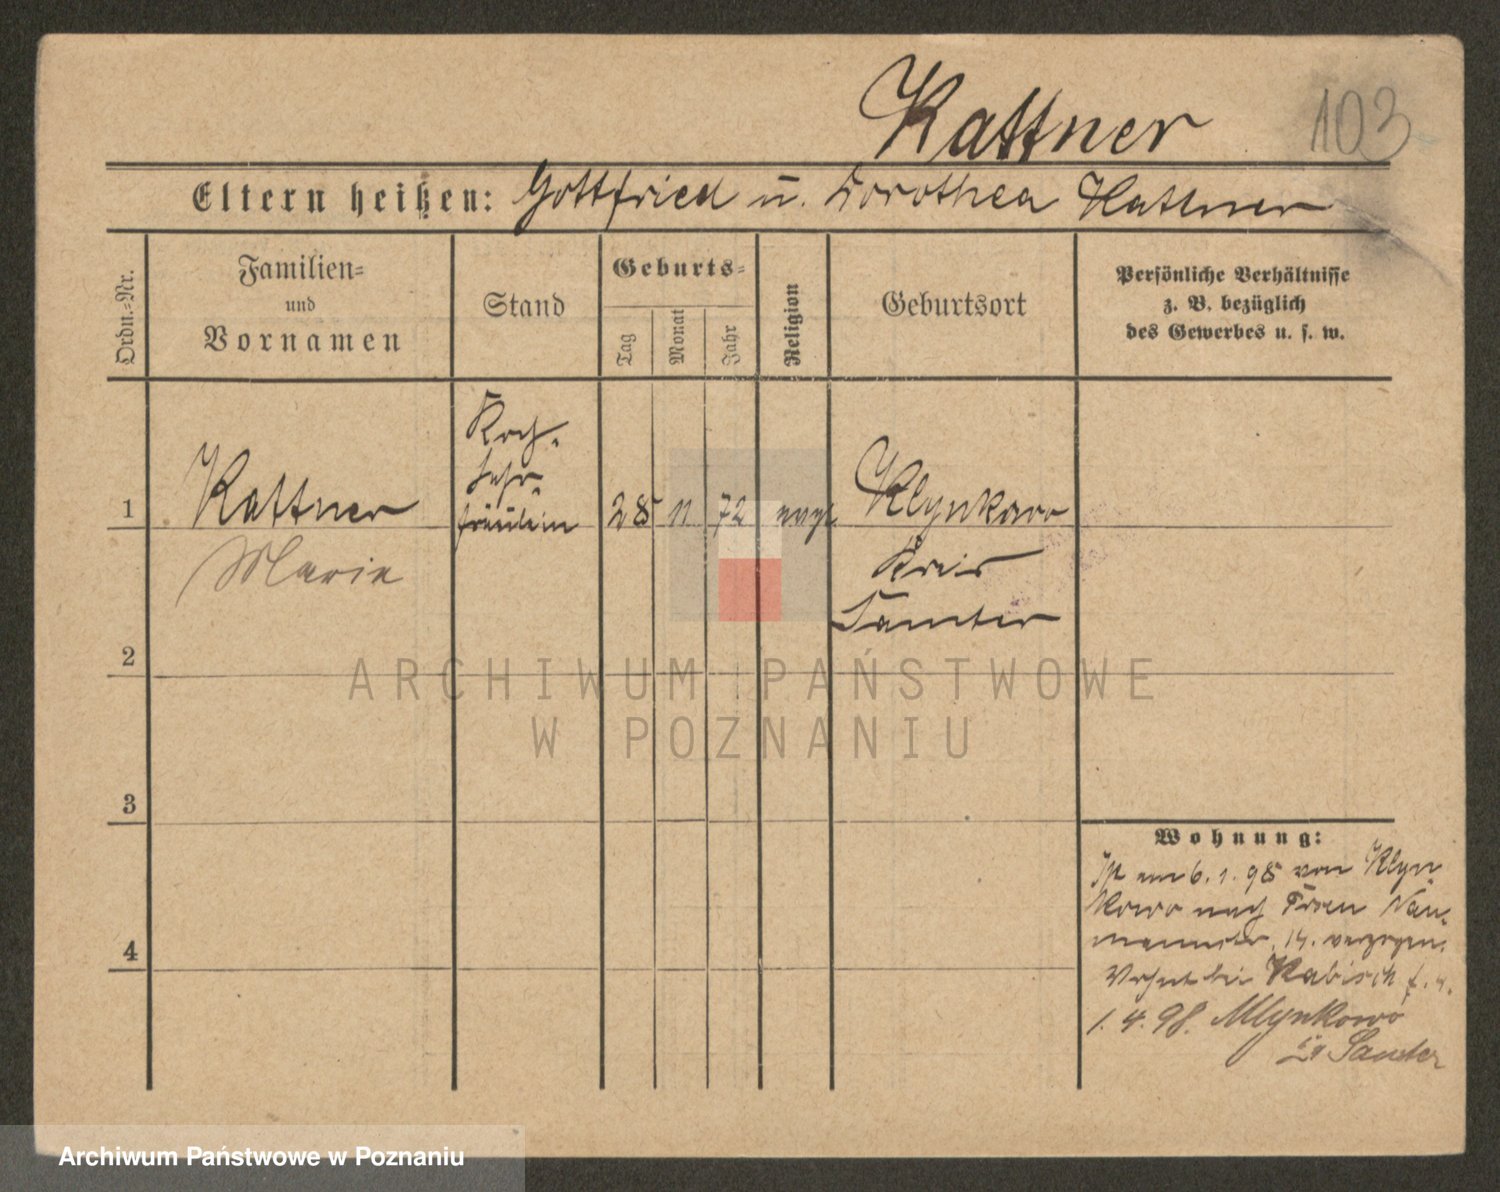 Kattner
103
Eltern heißen: Gottfried u. Dorothea Kattner
Ordn.-Nr.
Familien-
und
Vornamen
Stand
Geburts-
Tag
Monat
Jahr
Religion
Geburtsort
Persönliche Verhältnisse
z. B. bezüglich
des Gewerbes u. s. w.
1
Kattner
Marie
Koch-
Lehr-
fräulein
28
11
72
evgl.
Klynkowo
Kreis
Samter
2
ARCHIWUM PAŃSTWOWE
W POZNANIU
3
4
Wohnung:
Ist am 6. 1. 98 von Klyn-
kowo nach Frau
14. verzogen.
Wohnt bei Kabisch
1. 4. 98. Mlynkowo
Samter
Archiwum Państwowe w Poznaniu